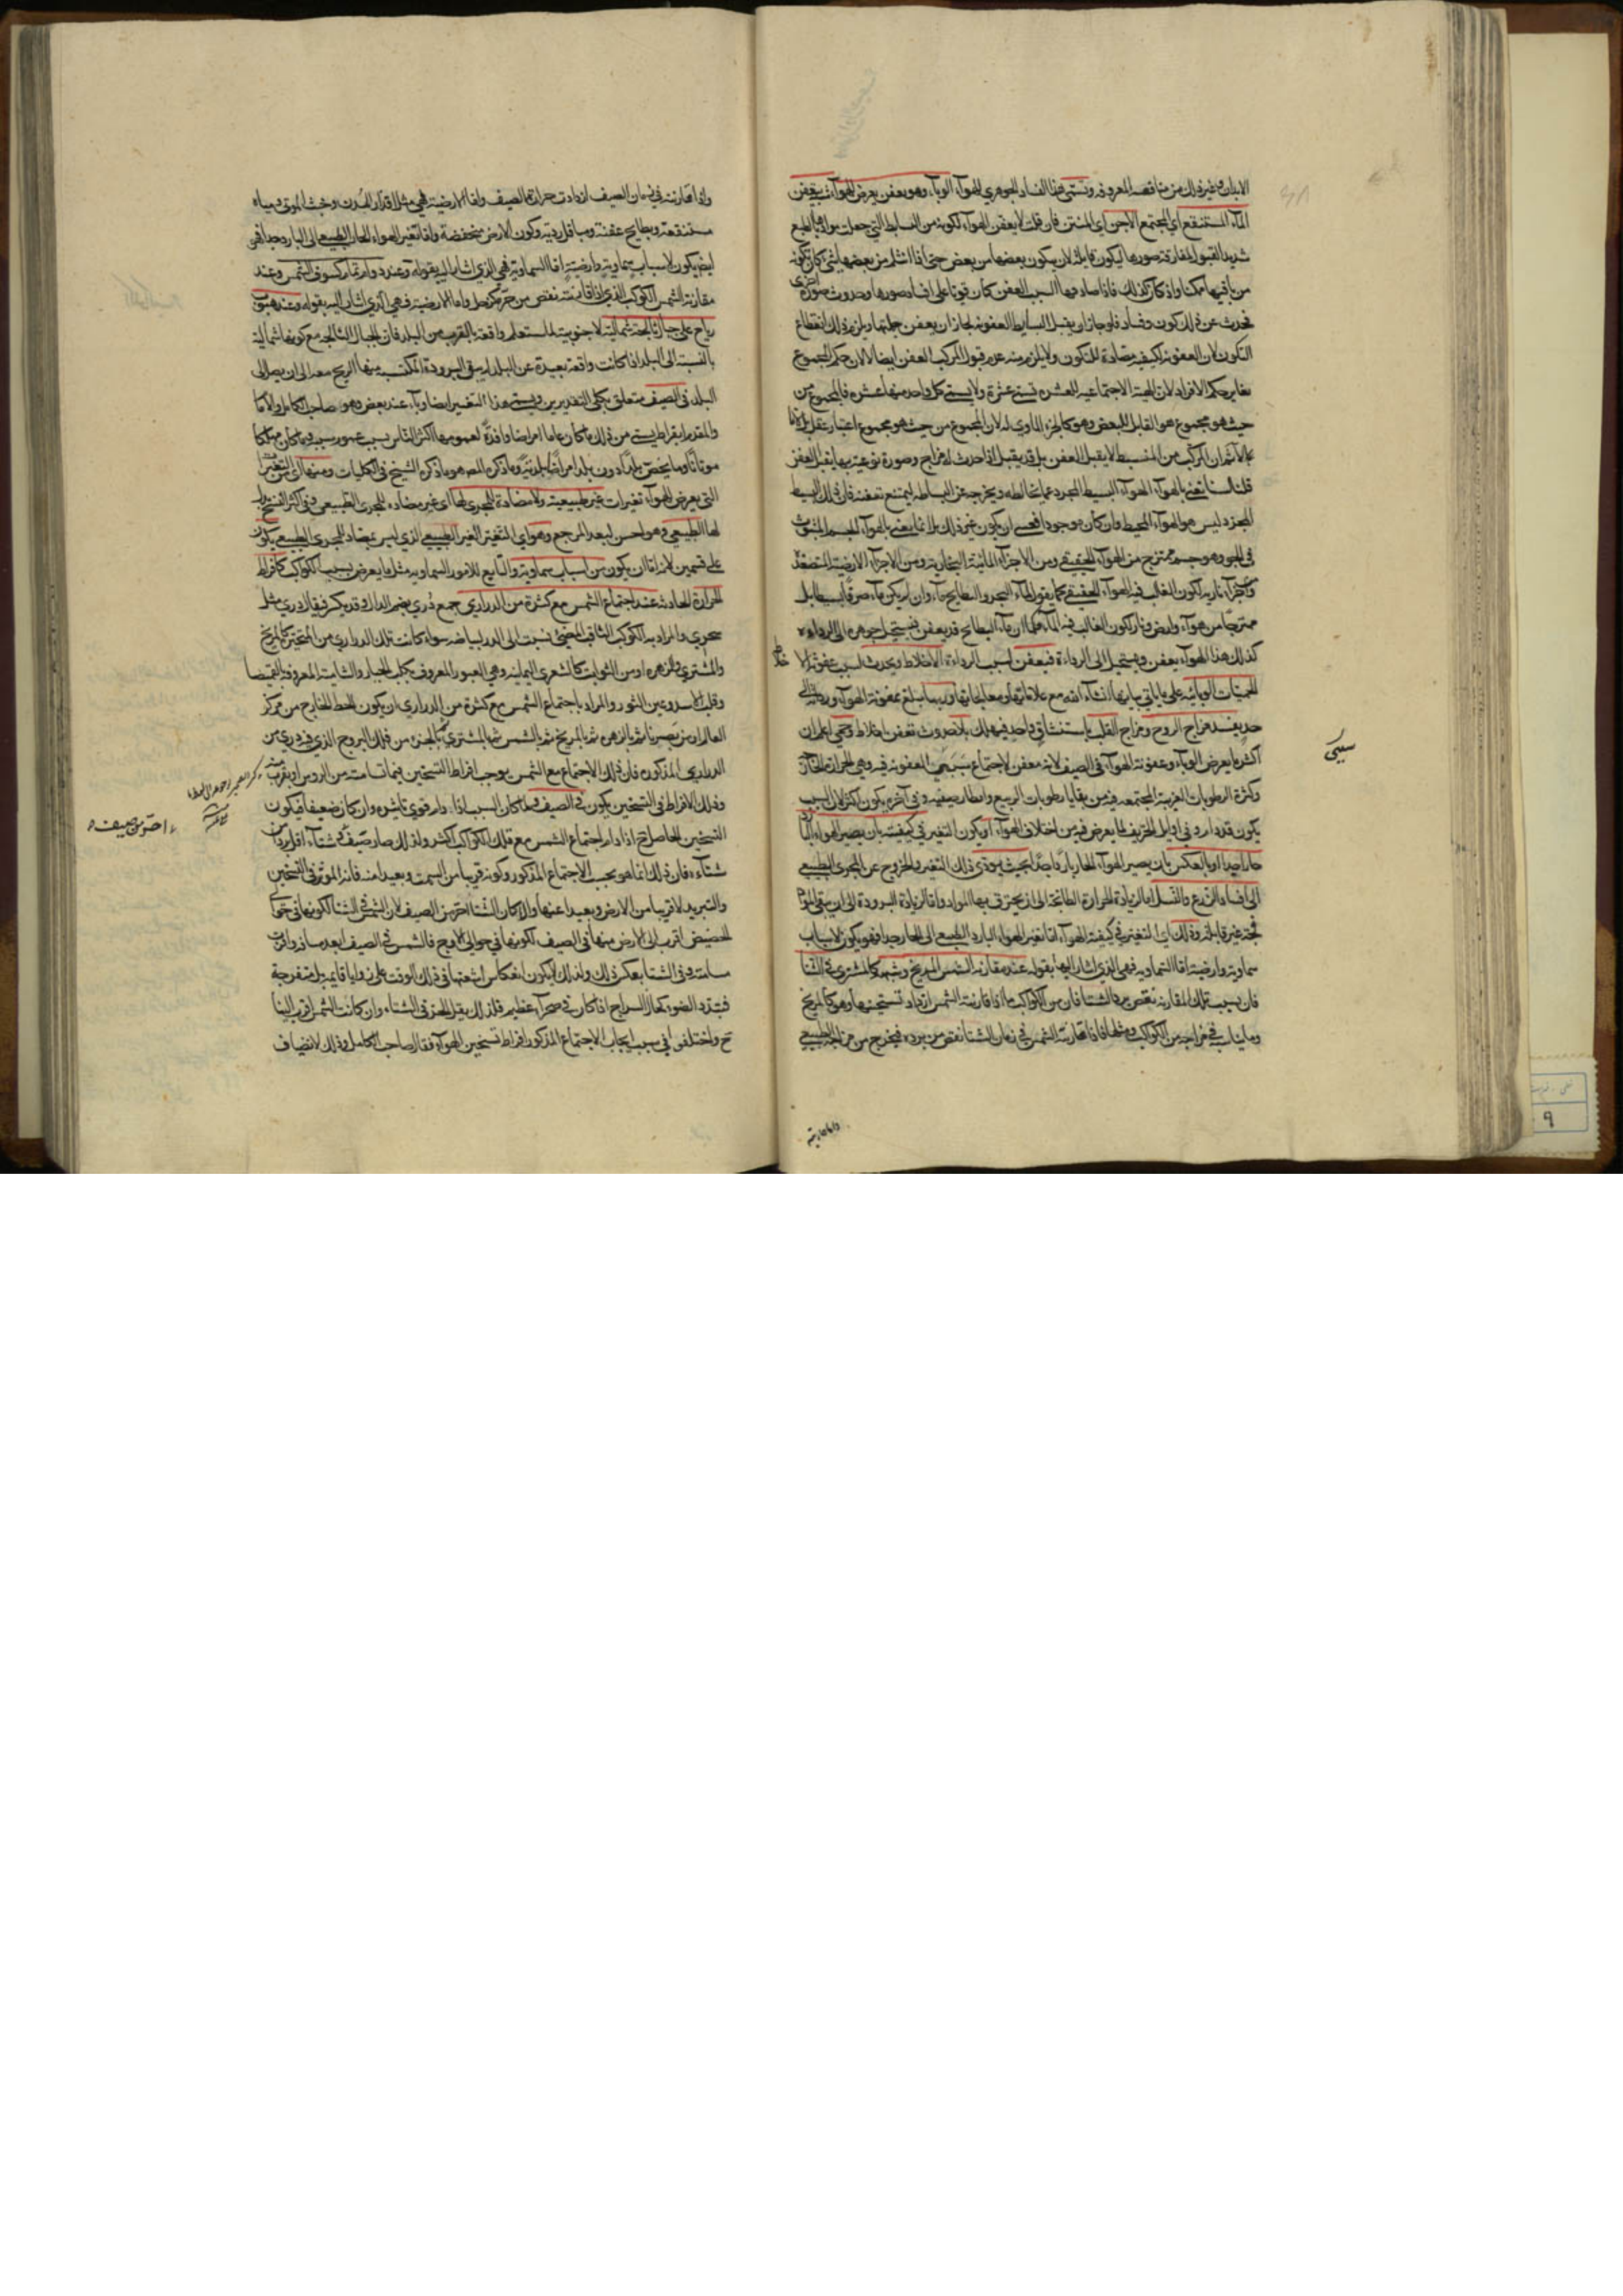 الابدان وغير ذلك من مناقصه المعروفه وتسمى هذا الفساد الجوهري للهواء الوباء وهو تعفن يعرض للهواء شبيه بتعفن
الماء المستنقع اي المجتمع الاجن اي المنتن فان قلت لا يعفن الهواء لكونه من البسايط التي جعلت مواد ها بالطبع
شديد القبول لمفارقة صورها ليكون قابلة لان يكون بعضها من بعض حتى اذا انثلم من بعضها شئ كان تكونه
من باقيها ممكنا واذ كان كذلك فاذا صادفها السبب المعفن كان قويا على افساد صورها وحدوث صورة اخرى
فحدث عن ذلك كون وفساد فلو جاز ان يقبل البسايط العفونه لجاز ان يعفن جملتها ويلزم ذلك انقطاع
التكون لان العفونه كيفيه مضادة للتكون ولا يلزم منه عدم قبول المركب العفن ايضا لان حكم المجموع
يغاير حكم الافراد لان الهيئة الاجتماعيه للعشره تسمى عشرة ولا يسمى كل واحد منها عشره فالمجموع من
حيث هو مجموع هو القابل للبعض وهو كالجزء المادي له لان المجموع من حيث هو مجموع اعتبار عقلي
ان المركب من البسيط لا يقبل العفن بل قد يقبل اذا حدث له مزاج وصورة نوعيه بها يقبل العفن
قلنا لسنا نعني بالهواء الهواء البسيط المجرد عما يخالطه ويخرجه عن البساطه ليمتنع تعفنه فان ذلك البسيط
المجرد ليس هو الهواء المحيط وان كان موجودا فعسى ان يكون غير ذلك بل انما يعني بالهواء الجسم المبثوث
في الجو وهو جسم ممتزج من الهواء الحقيقي ومن الاجزاء المائية البخاريه ومن الاجزاء الارضية المتصعدة
واجزاء ناريه لكون الغالب فيه الهواء الحقيقي كما يقول لماء البحر والبطايح ماء وان لم يكن ماء صرفا بسيطا بل
ممتزجا من هواء وارض ونار لكون الغالب فيه الماء فكما ان ماء البطايح قد يعفن فيستحيل جوهره الى الرداءه
كذلك هذا الهواء يعفن ويستحيل الى الرداءة فيعفن لسبب الرداءة الاخلاط ويحدث لسبب عفونة الاخلاط
الحميات الوبائيه على ما ياتي بيانها انشاء الله مع علاماتها ومعالجاتها وربما بلغ بعفونة الهواء ورداءته الى
حد يفسد مزاج الروح ومزاج القلب باستنشاق واحد فيهلك بلا حدوث تعفن اخلاط وحمى اعلم ان
اكثر ما يعرض الوباء وعفونة الهواء في الصيف لانه معفن لاجتماع سببي العفونه فيه وهي الحرارة الحاره
وكثرة الرطوبات الغريبة المجتمعه فيه من بقايا رطوبات الربيع وامطار صيفيه وفي آخره يكون اكثر لان السبب
يكون قد دام وفي اوايل الخريف لما يعرض فيه من اختلاف الهواء او يكون التغير في كيفيته بان يصير الهواء البارد
حارا جدا او بالعكس بان يصير الهواء الحار باردا جدا بحيث يودي ذلك التغير والخروج عن المجرى الطبيعي
الى افساد الزرع والنسل اما لزيادة الحرارة الطابخة الى ان يحترق بها المواد واما لزيادة البرودة الى ان يبقى المواد
فجة غير قابلة وذلك اي التغير في كيفية الهواء اما تغير الهواء البارد الطبيعي الى الحار جدا فهو يكون لاسباب
سماوية وارضية اما السماويه فهي الذي اشار اليها بقوله عند مقارنة الشمس المريخ وشبهه كالمشتري في الشتا
فان بسبب تلك المقارنه ينقص برد الشتا فان من الكواكب ما اذا قارنته الشمس ازداد تسخينها وهو كالمريخ
وما يناسبه في مزاجه من الكواكب وغيرها فاذا قارنته الشمس في زمان الشتا نقص من برده فيخرج من مزاجه الطبيعي
واذا قارنته
سيبى
واذا قارنته في زمان الصيف ازدادت حرارة الصيف واما الارضية فهي مثل اقذار المدن وجثث الموتى ومياه
مستنقعة وبطايح عفنة ومباقل رديه وكون الارض منخفضة واما تغير الهواء الحار الطبيعي الى البارد جدا فهي
ايضا يكون لاسباب سماوية وارضية اما السماوية فهي الذي اشار اليه بقوله وعند دوام تمادي كسوف الشمس وعند
مقارنة الشمس الكوكب الذي اذا قارنته نقص من حره كزحل واما الارضية فهي الذي اشار اليه بقوله وعند هبوب
رياح على جبال ثالجة شمالية لا جنوبية للمستعلم واقعة بالقرب من البلد فان الجبال الثالجه مع كونها شمالية
بالنسبة الى البلد اذا كانت واقعة بعيدة عن البلد لم يبق البرودة المكتسبة منها الريح معه الى ان يصل الى
البلد في الصيف متعلق بكلي التقديرين ويسمى هذا التغير ايضا وباء عند بعض وهو صاحب الكامل والامام
والمقدم ابقراط يسمى من ذلك ما كان عاما امراضا وافدة لعمومها اكثر الناس بسبب عموم سببه وما كان مهلكا
موتانا وما يختص بلدا دون بلد امراضا بلدية وما ذكره المص هو ما ذكره الشيخ في الكليات ومنها اي من التغيرات
التي يعرض للهواء تغيرات غير طبيعية ولا مضادة للمجرى لها اي غير مضاده للمجرى الطبيعي وفي اكثر النسخ
لها الطبيعي وهو احسن لبعد المرجع وهو اي التغير الغير الطبيعي الذي ليس بمضاد للمجرى الطبيعي يكون
على قسمين لانه اما ان يكون من اسباب سماوية والتابع للامور السماويه مثل ما يعرض بسبب الكواكب كافراط
الحرارة الحادثه عند اجتماع الشمس مع كثرة من الدراري جمع دري بضم الدال وقد يكسر فيقال دري مثل
سخري والمراد به الكوكب الثاقب المضئ نسبت الى الدر لبياضه سواء كانت تلك الدراري من المتحيرة كالمريخ
والمشتري والزهره او من الثوابت كالشعرى اليمانيه وهي العبور المعروفه بكلب الجبار والشاميه المعروفه بالغميصا
وقلب الاسد وعين الثور والمراد باجتماع الشمس مع كثرة من الدراري ان يكون الخط الخارج من مركز
العالم او من بصرنا مثلا بالزهره ثم بالمريخ ثم بالشمس ثم بالمشتري ثم بالجزء من فلك البروج الذي فيه دري من
الدراري المذكوره فان ذلك الاجتماع مع الشمس يوجب افراط التسخين فيما تسامته من الروس او يقرب منه
وذلك الافراط في التسخين يكون في الصيف فلما كان السبب اذا دام قوي تاثيره وان كان ضعيفا فيكون
التسخين الحاصل ح اذا دام اجتماع الشمس مع تلك الكواكب اكثر ولذلك صار صيف وشتاء اقل برد من
شتاء فان ذلك انما هو بحسب الاجتماع المذكور وكونه قريبا من السمت وبعيدا منه فانه الموثر في التسخين
والتبريد لا قربها من الارض وبعيدا عنها والا لكان الشتا احر من الصيف لان الشمس في الشتا لكونها في حوالي
الحضيض اقرب الى الارض منها في الصيف لكونها في حوالي الاوج فالشمس في الصيف ابعد مسافة واقرب
مسامتة وفي الشتا بعكس ذلك ولذلك لا يكون انعكاس اشعتها في ذلك الوقت على زوايا قايمه بل منفرجة
فيتبدد الضوء كحال السراج اذا كان في صحراء عظيم فلذلك يقل الحر في الشتاء وان كانت الشمس اقرب الينا
ح واختلفوا في سبب ايجاب الاجتماع المذكور افراط تسخين الهواء فقال صاحب الكامل وذلك لانضياف
احر من صيف